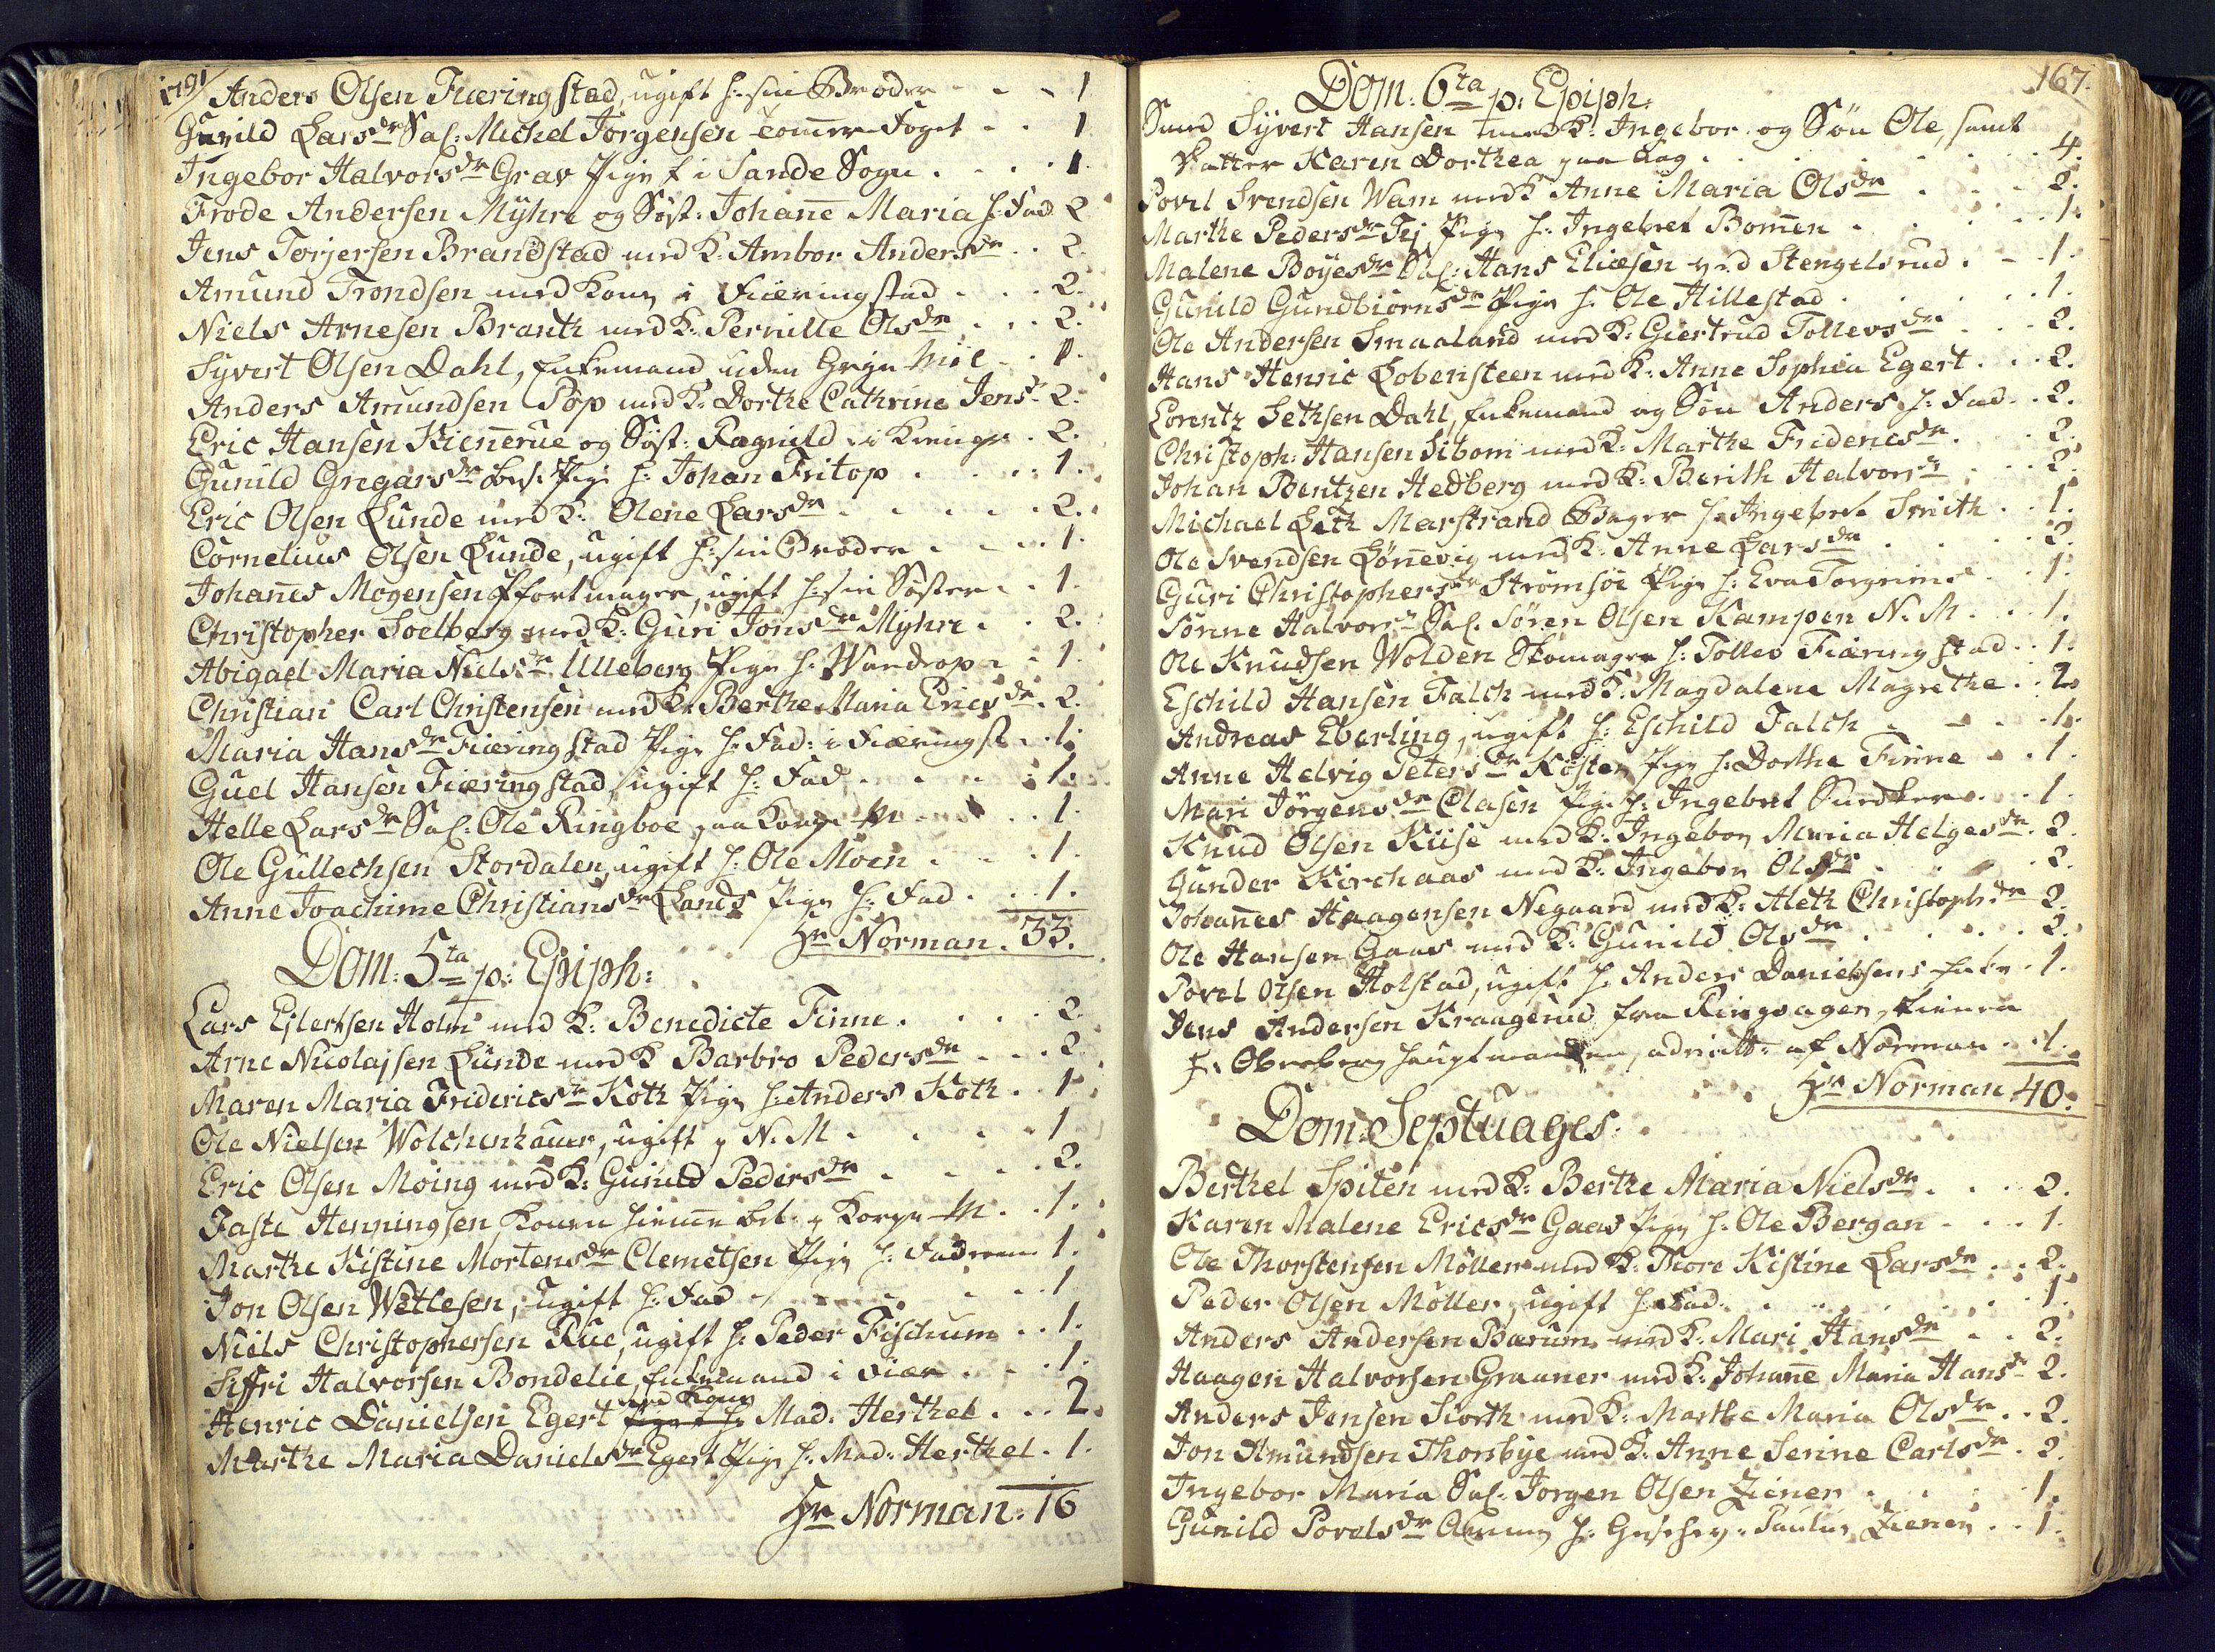 1791
Anders Olsen Fiæringstad, ugift h: sin Broder - - - 1
Gunild Larsdr Sal: Michel Jörgensen Foget - - 1
Ingebor Halvorsdr Grav Pige f i Sande Sogn . . . 1
Frode Andersen Mÿhre og Söst: Johañe Maria h: Fad 2
Jens Torjersen Brandstad med K: Ambor Andersdr . . 2.
Amund Trondsen med Kone i Fiæringstad . . . 2.
Niels Arnesen Brantz med K: Pernille Olsdr . . . 2.
Syvert Olsen Dahl, Enkemand uden - . 1.
Anders Amundsen Pop med K: Dorthe Cathrine Jensdr 2.
Eric Hansen Kieñerue og Söst: Ragnild i . 2.
Gunild Gregarsdr bes: Pige h: Johan Fritop . . . . 1.
Eric Olsen Lunde med K: Olene Larsdr . . . . . 2.
Cornelius Olsen Lunde, ugift h: sin Broder . . . . 1.
Johañes Mogensen, ugift h: sin Söster . . 1.
Christopher Soelberg med K: Guri Jonsdr Mÿhre . . 2.
Abigael Maria Nielsdr Ulleberg Pige h: Wandrop . . 1.
Christian Carl Christensen med K: Berthe Maria Ericsdr . 2.
Maria Hansdr Fiæringstad Pige h: Fad: i Fiæringst . . 1.
Guel Hansen Fiæringstad, ugift h: Fad . . . . . 1.
Helle Larsdr Sal: Ole Ringboe paa M . . . . 1.
Ole Gullechsen Stordalen, ugift h: Ole Moen . . . 1.
Anne Joachime Christiansdr Lands Pige h: Fad . . . 1.
Hr Norman. 33.
Dom: 5ta p: Epiph:
Lars Ejlertsen Holm med K: Benedicte Finne . . . . 2.
Arne Nicolajsen Lunde med K Barbro Pedersdr . . . 2.
Maren Maria Fridericsdr Koth Pige h: Anders Koth . . 1.
Ole Nielsen Wolchenhauer, ugift N. M . . . . 1.
Eric Olsen Moing med K: Gunild Pedersdr . . . . 2.
Faste Henningsen, Konen M . . 1.
Marthe Kistine Mortensdr Clemetsen Pige h: 1.
Jon Olsen Wetlesen, ugift h: Fad . . . . . . 1
Niels Christophersen Rue, ugift h: Peder Fischum . . 1.
Siffri Halvorsen Bondelie, Enkemand i . . . 1.
Henric Danielsen Egert med Kone Mad: Herthel . . . 2.
Marthe Maria Danielsdr Egert Pige h: Mad: Herthel . 1.
Hr Norman: 16
167.
Dom: 6ta p: Epiph:
Syvert Hansen med K: Ingebor og Sön Ole, samt
Datter Karen Dorthea . . . . . . . . 4.
Povel Svendsen Wam med K Anne Maria Olsdr . . . 2.
Marthe Pedersdr Fej Pige h: Ingebret Bomen . . . . 1.
Malene Boyesdr Sal: Hans Eliæsen ved Stengelsrud . . 1.
Gunild Gundbiørnsdr Pige h: Ole Hillestad . . . . . 1.
Ole Andersen Smaaland med K: Giertrud Tollevsdr . . . 2.
Hans Henric Lobensteen med K: Anne Sophia Egert . . . 2.
Lorentz Sethsen Dahl, Enkemand og Sön Anders h: Fad . . 2.
Christoph: Hansen Sibom med K: Marthe Fridericsdr . . . 2.
Johan Bentzen Hedberg med K: Berith Halvorsdr . . . 2.
Michael Leth Marstrand Bager h: Ingebret Smith . . 1.
Ole Svendsen Löñevig med K: Anne Larsdr . . . . 2.
Guri Christophersdr Strømsöe Pige h: Eva Torgrims . . 1.
Sönne Halvorsdr Sal: Sören Olsen Kampen N. M . . . 1.
Ole Knudsen Wolden Skomager h: Tollev Fiæringstad . . 1.
Eschild Hansen Falch med K: Magdalene Magrethe . . 2.
Andreas Eberling, ugift h: Eschild Falch . . . . 1.
Anne Helvig Petersdr Köster Pige h: Dorthe Finne . . . 1.
Mari Jörgensdr Clasen Pige h: Ingebret . . . 1.
Knud Olsen Kiise med K: Ingebor Maria Helgesdr . 2.
Gunder Kirchaas med K: Ingebor Olsdr . . . . 2.
Johañes Haagensen Negaard med K: Aleth Christoph:dr 2.
Ole Hansen Gaas med K: Gunild Olsdr . . . . . 2.
Povel Olsen Holstad, ugift h: Anders Danielsens Enke . 1.
Jens Andersen Kraagerud fra Ringsager, tiener
h: , admitt: af Norman . . 1.
Hr Norman 40.
Dom: Septuages:
Berthel Spiten med K: Berthe Maria Nielsdr . . . 2.
Karen Malene Ericsdr Gaas Pige h: Ole Bergan . . . 1.
Ole Thorstensen Möller med K: Thore Kistine Larsdr . . 2.
Peder Olsen Möller, ugift h: Fad . . . . . . . 1.
Anders Andersen Bærum med K: Mari Hansdr . . 2.
Haagen Halvorsen Graaner med K: Johañe Maria Hansdr 2.
Anders Jensen Siorth med K: Marthe Maria Olsdr . . 2.
Jon Amundsen Thorsbye med K: Anne Serine Carlsdr . 2.
Ingebor Maria Sal: Jörgen Olsen Ziener . . . . . 1.
Gunild Povelsdr h: Paulus Ziener . . 1.